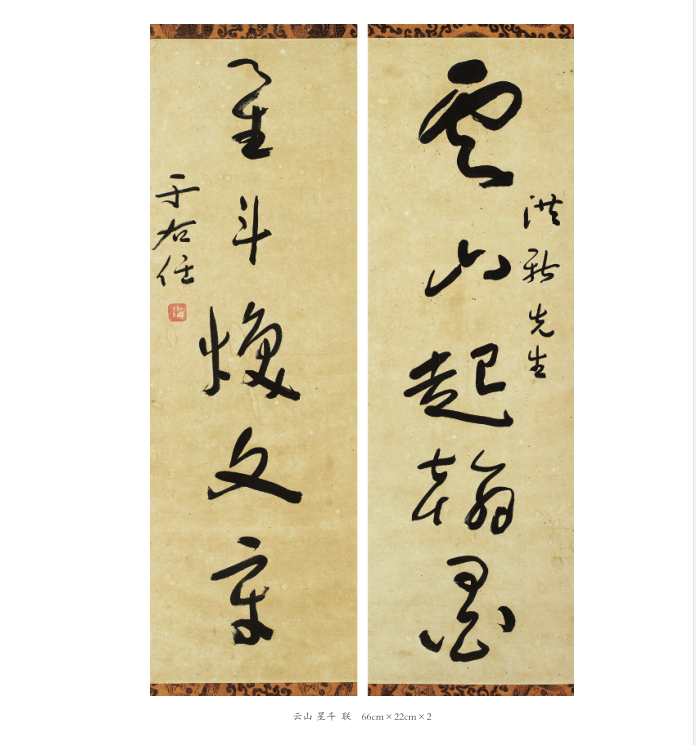 雲山起翰墨
洪秋先生
星斗煥文章
于右任
云山 星斗 联 66cm×22cm×2